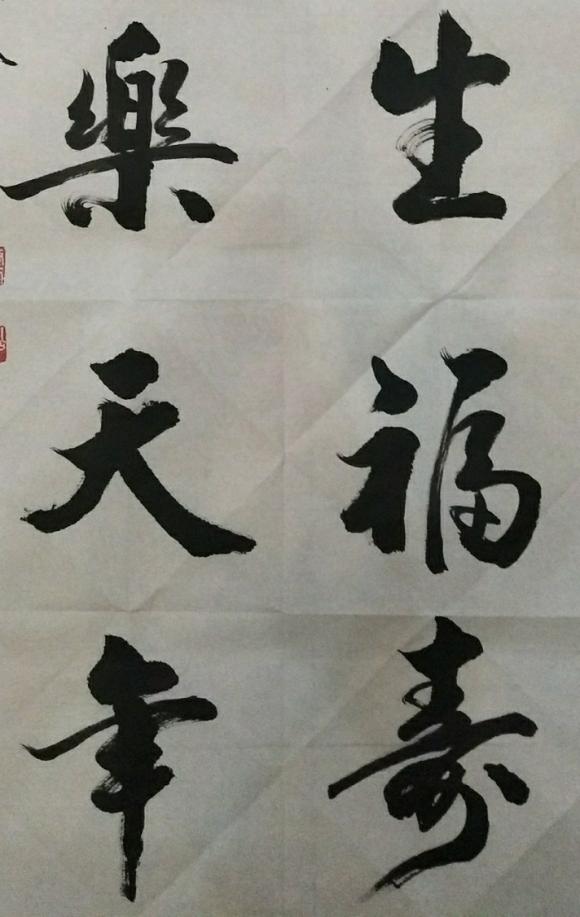 生福寿
樂天年